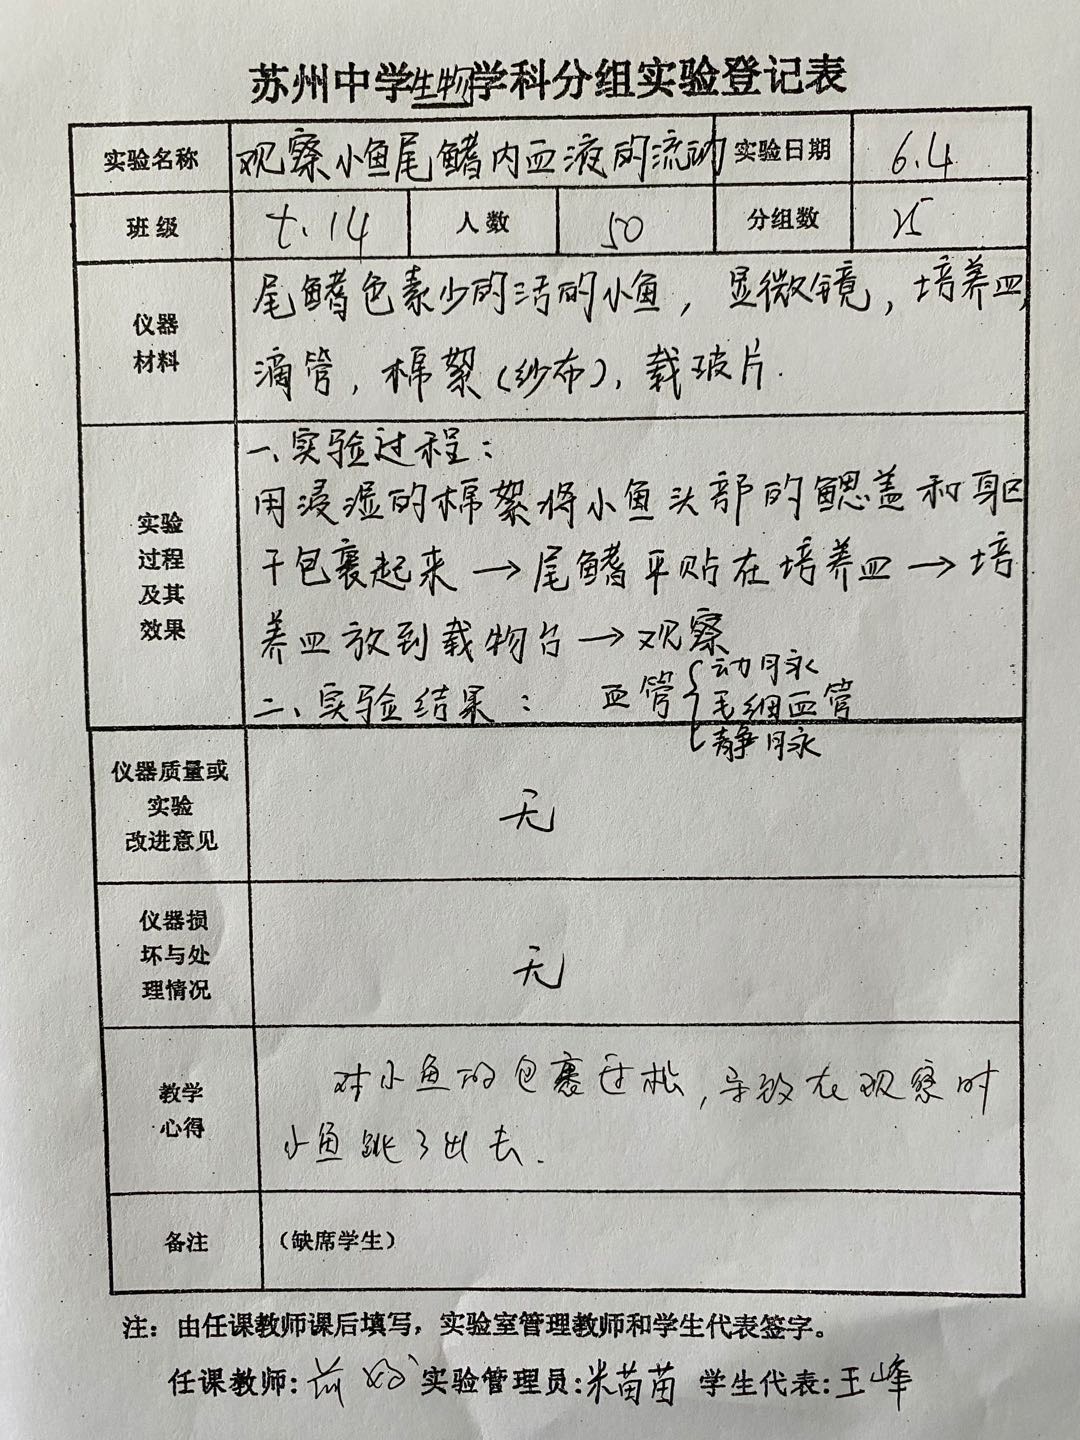 苏州中学生物学科分组实验登记表
实验名称 观察小鱼尾鳍内血液的流动 实验日期 6.4
班级 七.14 人数 50 分组数 25
仪器
材料
尾鳍色素少的活的小鱼，显微镜，培养皿，
滴管，棉絮（纱布），载玻片.
实验
过程
及其
效果
一、实验过程：
用浸湿的棉絮将小鱼头部的鳃盖和躯
干包裹起来→尾鳍平贴在培养皿→培
养皿放到载物台→观察
二、实验结果： 血管{动脉
毛细血管
静脉
仪器质量或
实验
改进意见
无
仪器损
坏与处
理情况
无
教学
心得
对小鱼的包裹过松，导致在观察时
小鱼跳了出去.
备注 （缺席学生）
注：由任课教师课后填写，实验室管理教师和学生代表签字。
任课教师: 实验管理员:米苗苗 学生代表:王峰